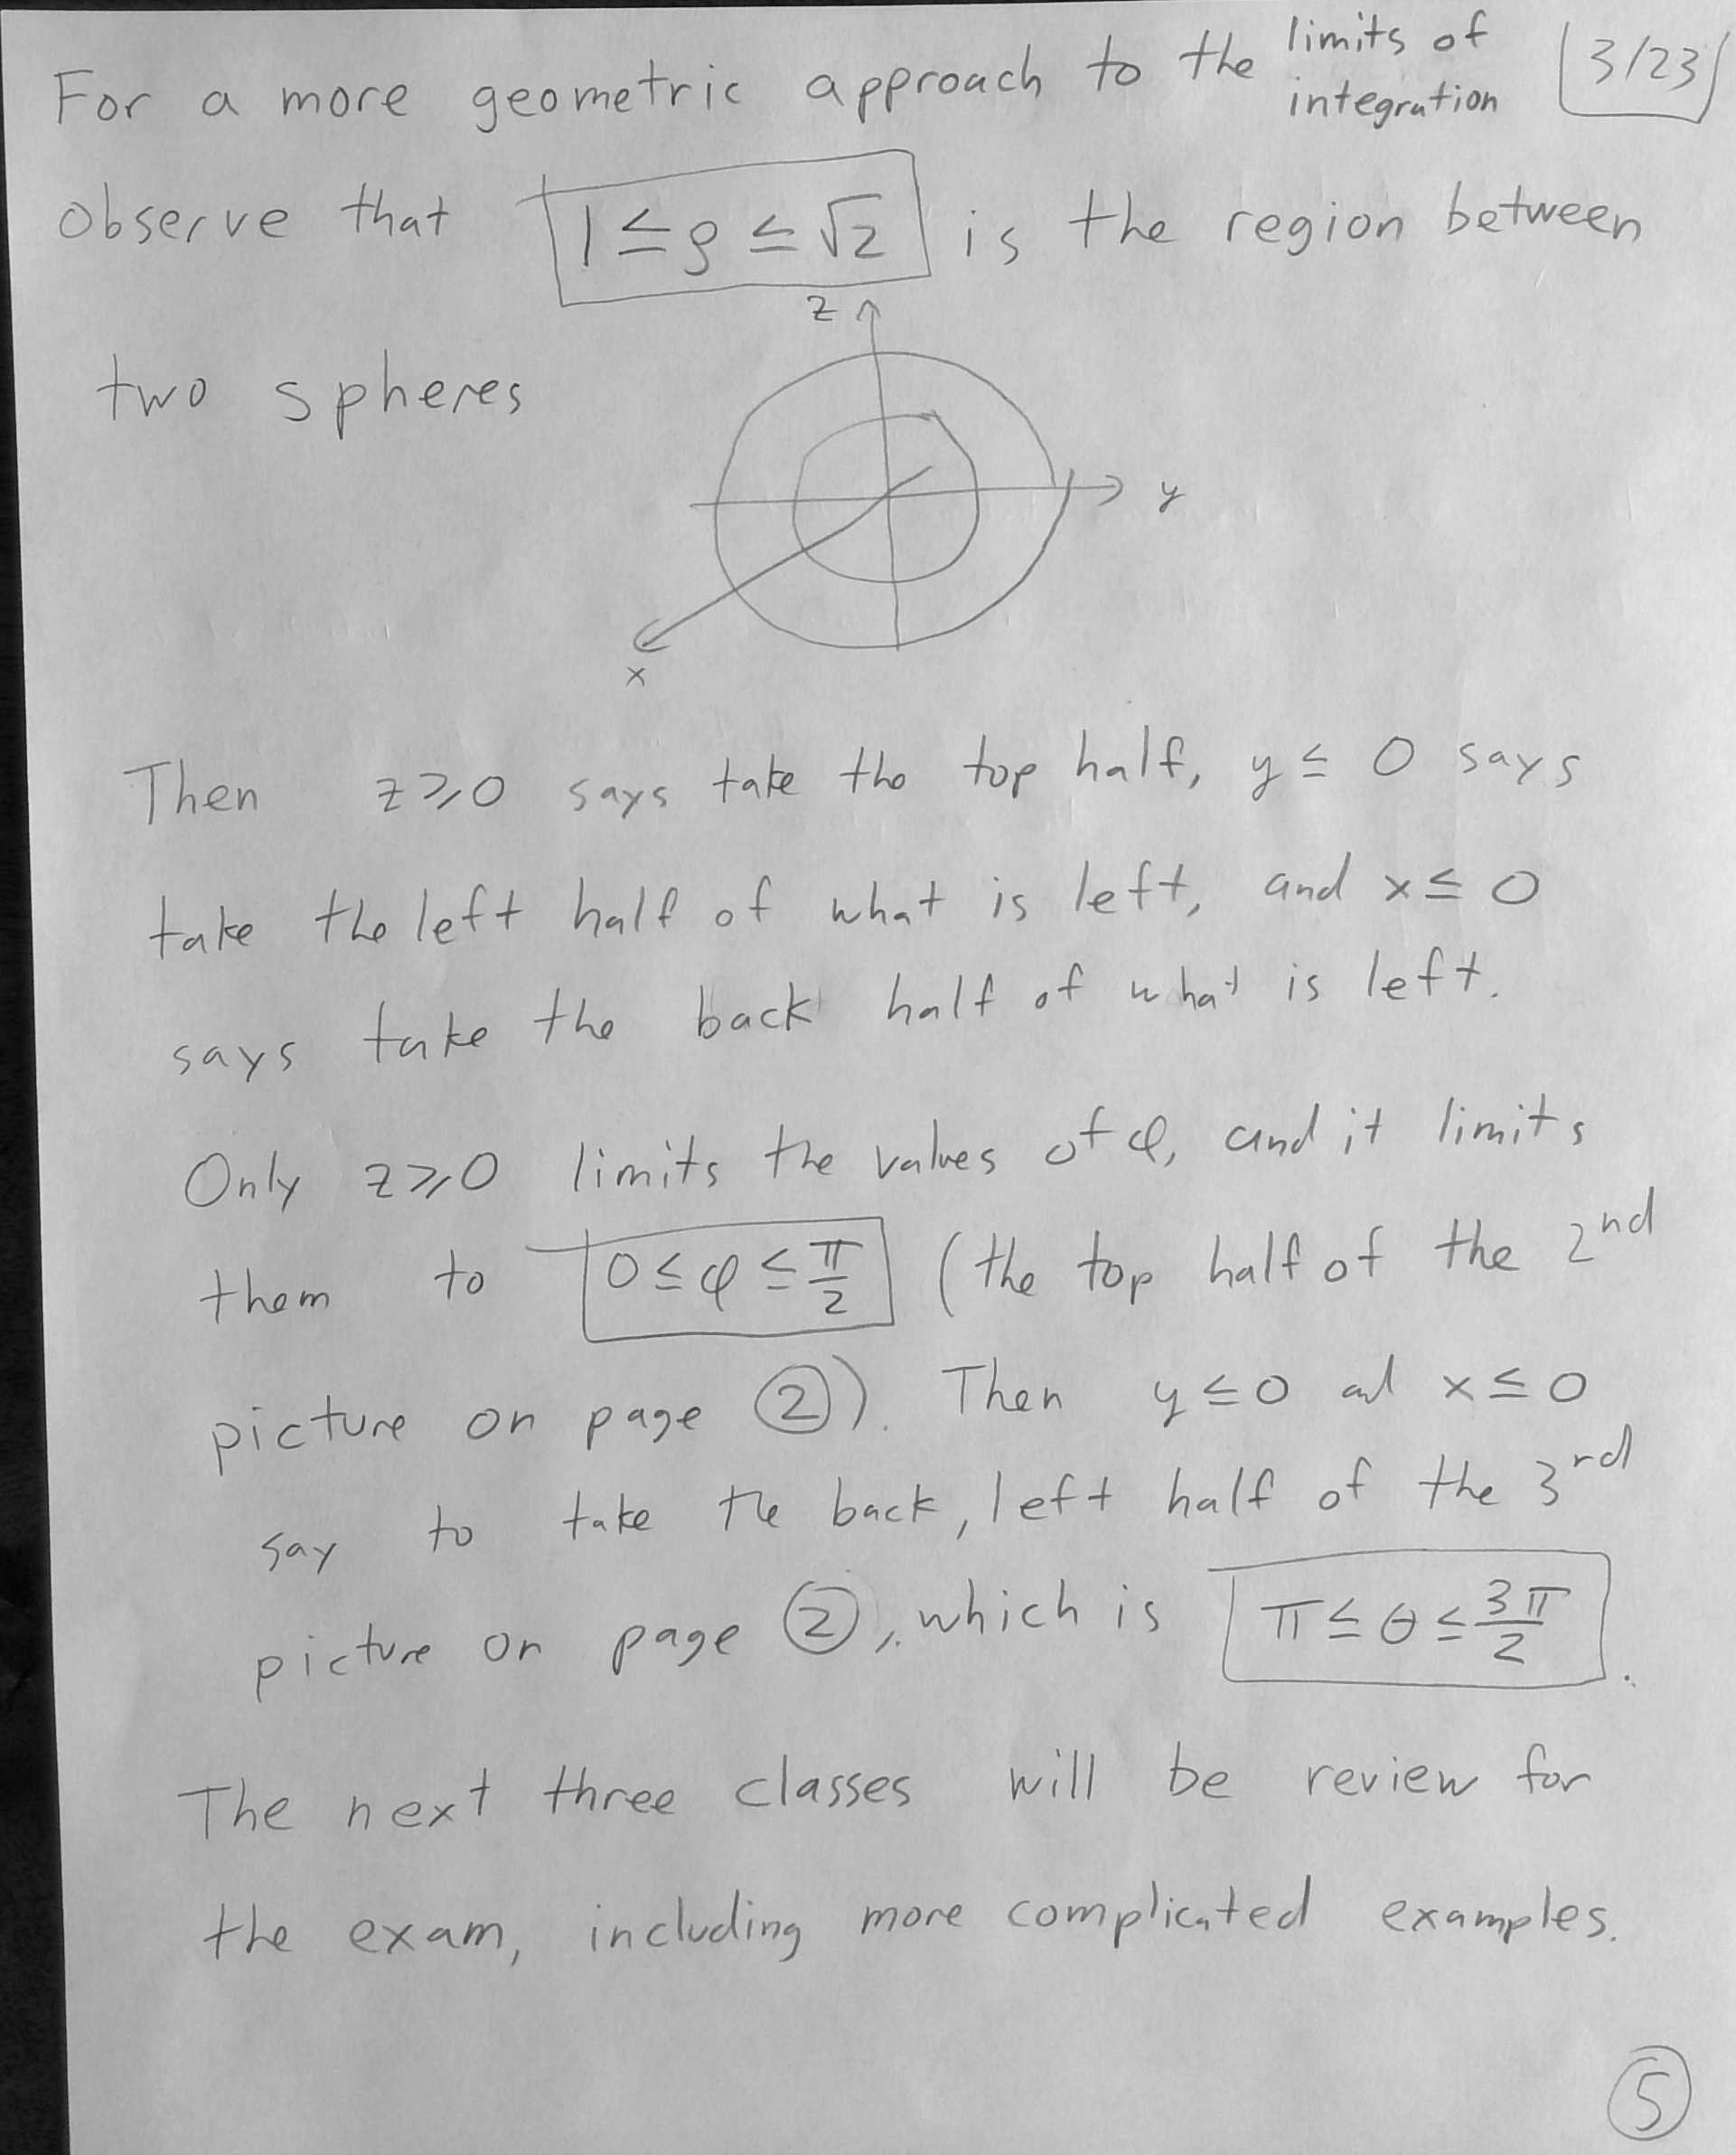 For a more geometric approach to the limits of integration
3/23
observe that 1 ≤ ρ ≤ √2 is the region between
two spheres
z
y
x
Then z ≥ 0 says take the top half, y ≤ 0 says
take the left half of what is left, and x ≤ 0
says take the back half of what is left.
Only z ≥ 0 limits the values of φ, and it limits
them to 0 ≤ φ ≤ π/2 (the top half of the 2nd
picture on page ②). Then y ≤ 0 and x ≤ 0
say to take the back, left half of the 3rd
picture on page ②, which is π ≤ θ ≤ 3π/2.
The next three classes will be review for
the exam, including more complicated examples.
⑤